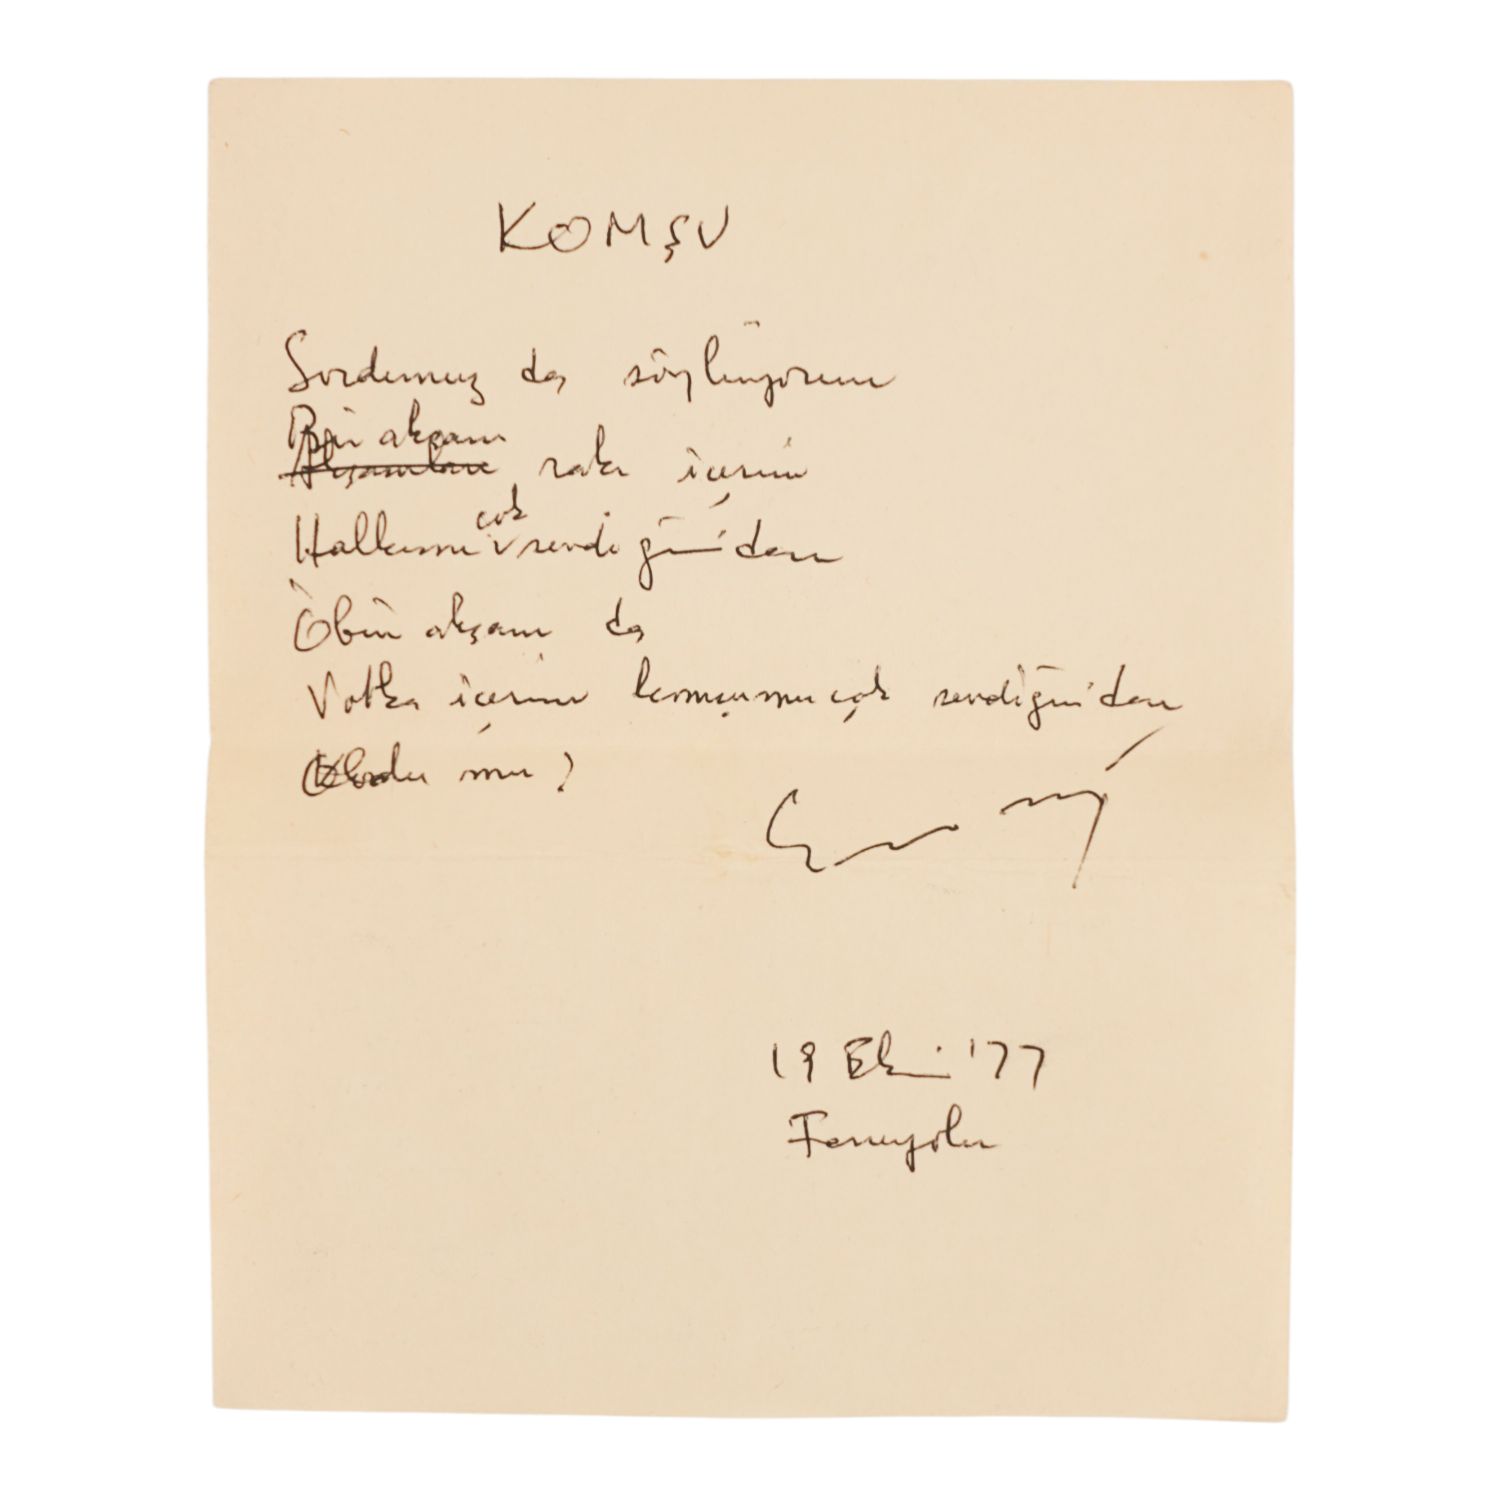 KOMŞU
Sordunuz da söylüyorum
Bir akşam
Akşamları rakı içerim
Halkımı çok sevdiğimden
Öbür akşam da
Votka içerim komşumu çok sevdiğimden
Oldu mu?
19 Ekim '77
Feneryolu